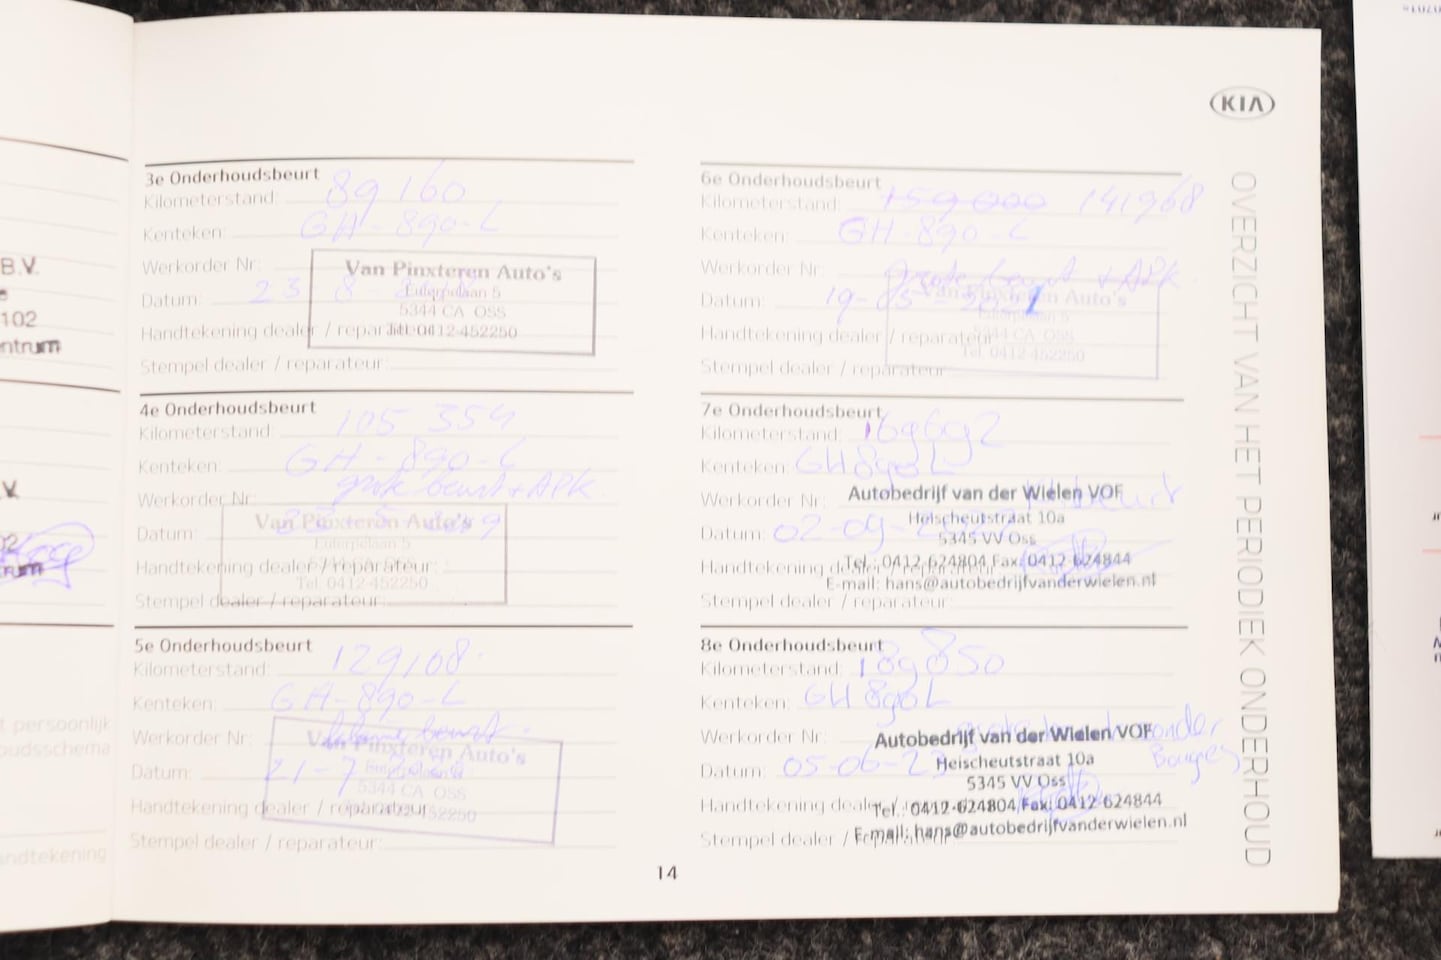 B.V.
102
ntrum
V.
02
trum
t persoonlijk
oudsschema
andtekening
KIA
OVERZICHT VAN HET PERIODIEK ONDERHOUD
3e Onderhoudsbeurt
Kilometerstand: 89160
Kenteken: GH-890-L
Werkorder Nr:
Datum: 23 8
Handtekening dealer / reparateur:
Stempel dealer / reparateur:
Van Pinxteren Auto's
Euterpelaan 5
5344 CA OSS
Tel. 0412-452250
4e Onderhoudsbeurt
Kilometerstand: 105 354
Kenteken: GH-890-L
Werkorder Nr: grote beurt + APK
Datum:
Handtekening dealer / reparateur:
Stempel dealer / reparateur:
Van Pinxteren Auto's
Euterpelaan 5
Tel. 0412-452250
5e Onderhoudsbeurt
Kilometerstand: 129108
Kenteken: GH-890-L
Werkorder Nr: kleine beurt
Datum: 21-7
Handtekening dealer / reparateur:
Stempel dealer / reparateur:
Van Pinxteren Auto's
Euterpelaan 5
5344 CA OSS
Tel. 0412-452250
6e Onderhoudsbeurt
Kilometerstand: 159000 141968
Kenteken: GH-890-L
Werkorder Nr: grote beurt + APK
Datum: 19-05-2021
Handtekening dealer / reparateur:
Stempel dealer / reparateur:
Van Pinxteren Auto's
Euterpelaan 5
5344 CA OSS
Tel. 0412-452250
7e Onderhoudsbeurt
Kilometerstand: 169692
Kenteken: GH890L
Werkorder Nr: beurt
Datum: 02-09
Handtekening dealer / reparateur:
Stempel dealer / reparateur:
Autobedrijf van der Wielen VOF
Heischeutstraat 10a
5345 VV Oss
Tel.: 0412-624804 Fax: 0412-624844
E-mail: hans@autobedrijfvanderwielen.nl
8e Onderhoudsbeurt
Kilometerstand: 189850
Kenteken: GH890L
Werkorder Nr: grote beurt zonder
Bougies
Datum: 05-06-23
Handtekening dealer / reparateur:
Stempel dealer / reparateur:
Autobedrijf van der Wielen VOF
Heischeutstraat 10a
5345 VV Oss
Tel.: 0412-624804 Fax: 0412-624844
E-mail: hans@autobedrijfvanderwielen.nl
14